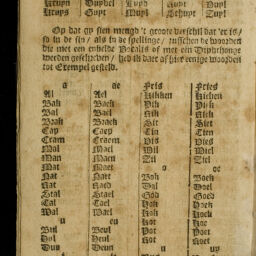 Kruys Guyt Muyl Schuyt Zuyl
Op dat gy sien meugd 't groote verschil dat 'er is/
so in de sin/ als in de spellinge/ tusschen de woorden
die met een enkelde Vocalis of met een Diphthonge
werden geschreven/ heb ik dare af hier eenige woorden
tot Exempel gesteld.
a ae Pris Pries
Al Ael Kikken Kieken
Bak Baek Pik Piek
Bal Bael Rik Riek
Bak Baek Sik Siek
Cap Caep Tin Tien
Cram Craem Vis Vies
Mal Mael Wil Wiel
Man Maen Zil Ziel
Mat Maet o oe
Nat Naet Bok Boek
Rat Raed Dol Doel
Stal Stael God Goed
Cal Cael Hok Hoek
Wal Wael Kok Koek
u eu Kor Koe
Bul Beul Pot Poet
Dul Deul Rot Roet
Dun Deun u uy